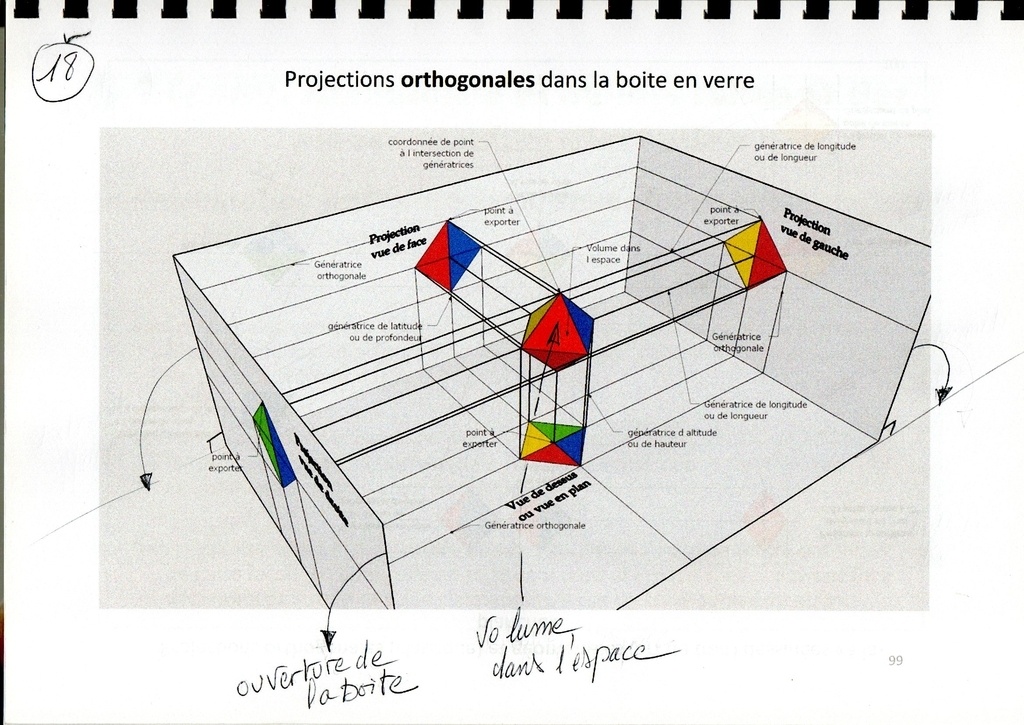 18
Projections orthogonales dans la boite en verre
coordonnée de point
à l intersection de
génératrices
génératrice de longitude
ou de longueur
point à
exporter
point à
exporter
Projection
vue de gauche
Projection
vue de face
Volume dans
l espace
Génératrice
orthogonale
génératrice de latitude
ou de profondeur
Génératrice
orthogonale
Génératrice de longitude
ou de longueur
point à
exporter
génératrice d altitude
ou de hauteur
point à
exporter
Projection
vue de
Vue de dessus
ou vue en plan
Génératrice orthogonale
Volume,
dans l'espace
ouverture de
la boite
99